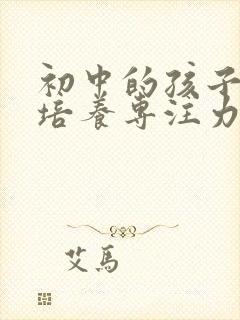 初中的孩子
培養專注力
艾馬